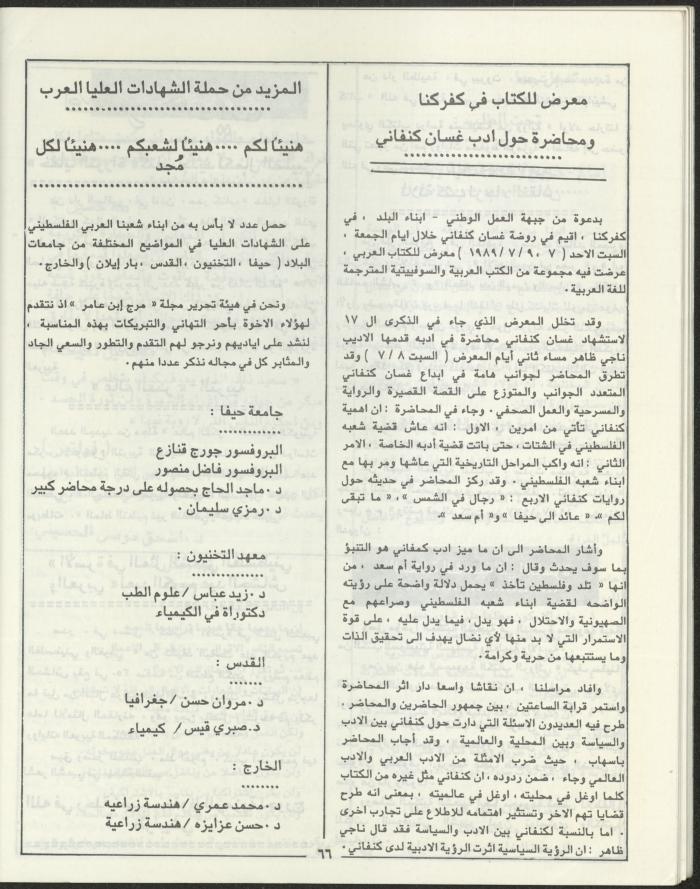 معرض للكتاب في كفركنا
ومحاضرة حول ادب غسان كنفاني
بدعوة من جبهة العمل الوطني - ابناء البلد ، في
كفركنا ، اقيم في روضة غسان كنفاني خلال ايام الجمعة ،
السبت الاحد ( ٧ ، ٩ / ٧ / ١٩٨٩ ) معرض للكتاب العربي ،
عرضت فيه مجموعة من الكتب العربية والسوفييتية المترجمة
للغة العربية .
وقد تخلل المعرض الذي جاء في الذكرى ال ١٧
لاستشهاد غسان كنفاني محاضرة في ادبه قدمها الاديب
ناجي ظاهر مساء ثاني أيام المعرض ( السبت ٨ / ٧ ) وقد
تطرق المحاضر لجوانب هامة في ابداع غسان كنفاني
المتعدد الجوانب والمتوزع على القصة القصيرة والرواية
والمسرحية والعمل الصحفي . وجاء في المحاضرة : ان اهمية
كنفاني تأتي من امرين ، الاول : انه عاش قضية شعبه
الفلسطيني في الشتات ، حتى باتت قضية أدبه الخاصة ، الامر
الثاني : انه واكب المراحل التاريخية التي عاشها ومر بها مع
ابناء شعبه الفلسطيني . وقد ركز المحاضر في حديثه حول
روايات كنفاني الاربع : « رجال في الشمس » ، « ما تبقى
لكم » ، « عائد الى حيفا » و « أم سعد » .
وأشار المحاضر الى ان ما ميز ادب كمفاني هو التنبؤ
بما سوف يحدث وقال : ان ما ورد في رواية أم سعد ، من
انها « تلد وفلسطين تأخذ » يحمل دلالة واضحة على رؤيته
الواضحه لقضية ابناء شعبه الفلسطيني وصراعهم مع
الصهيونية والاحتلال ، فهو يدل ، فيما يدل عليه ، على قوة
الاستمرار التي لا بد منها لأي نضال يهدف الى تحقيق الذات
وما يستتبعها من حرية وكرامة .
وافاد مراسلنا ، ان نقاشا واسعا دار اثر المحاضرة
واستمر قرابة الساعتين ، بين جمهور الحاضرين والمحاضر .
طرح فيه العديدون الاسئلة التي دارت حول كنفاني بين الادب
والسياسة وبين المحلية والعالمية ، وقد أجاب المحاضر
باسهاب ، حيث ضرب الامثلة من الادب العربي والادب
العالمي وجاء ، ضمن ردوده ، ان كنفاني مثل غيره من الكتاب
كلما اوغل في محليته ، اوغل في عالميته ، بمعنى انه طرح
قضايا تهم الاخر وتستثير اهتمامه للإطلاع على تجارب اخرى
. اما بالنسبة لكنفاني بين الادب والسياسة فقد قال ناجي
ظاهر : ان الرؤية السياسية اثرت الرؤية الادبية لدى كنفاني .
المزيد من حملة الشهادات العليا العرب
هنيئا لكم .... هنيئا لشعبكم .... هنيئا لكل
مُجد
حصل عدد لا بأس به من ابناء شعبنا العربي الفلسطيني
على الشهادات العليا في المواضيع المختلفة من جامعات
البلاد ( حيفا ، التخنيون ، القدس ، بار إيلان ) والخارج .
ونحن في هيئة تحرير مجلة « مرج إبن عامر » اذ نتقدم
لهؤلاء الاخوة بأحر التهاني والتبريكات بهذه المناسبة ،
لنشد على اياديهم ونرجو لهم التقدم والتطور والسعي الجاد
والمثابر كل في مجاله نذكر عددا منهم .
جامعة حيفا :
البروفسور جورج قنازع
البروفسور فاضل منصور
د . ماجد الحاج بحصوله على درجة محاضر كبير
د . رمزي سليمان .
معهد التخنيون :
د . زيد عباس / علوم الطب
دكتوراة في الكيمياء
القدس :
د . مروان حسن / جغرافيا
د . صبري قيس / كيمياء
الخارج :
د . محمد عمري / هندسة زراعيه
د . حسن عزايزه / هندسة زراعية
٦٦